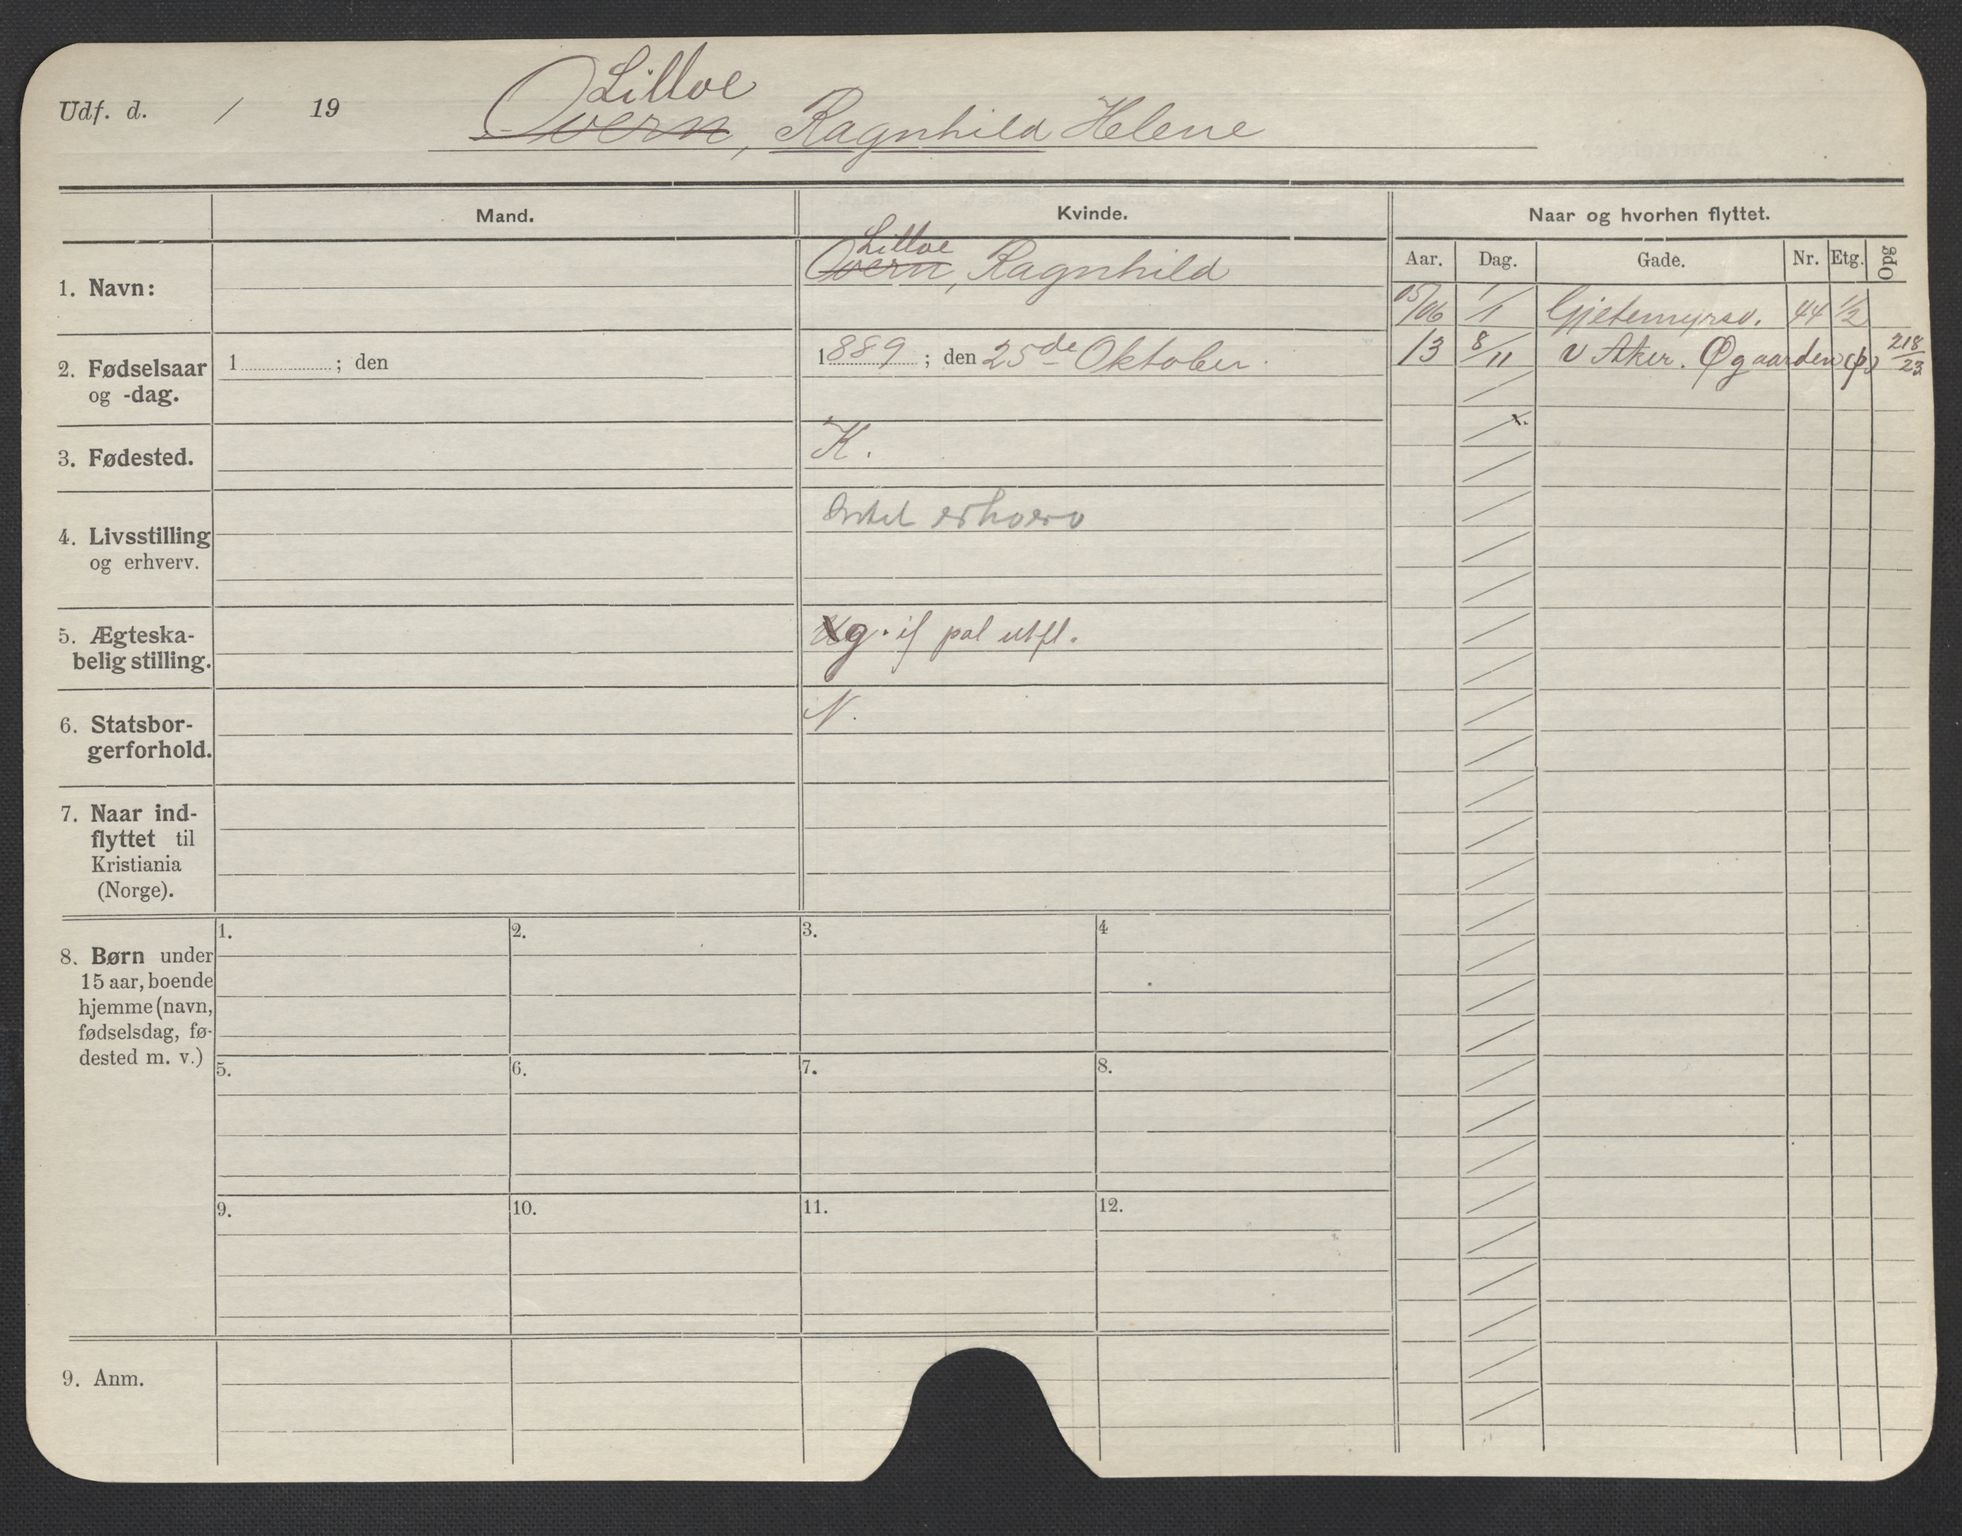 Lilloe
Udf. d. / 19 Overn, Ragnhild Helene
Mand. Kvinde. Naar og hvorhen flyttet.
Aar. Dag. Gade. Nr. Etg. Opg
Lilloe
1. Navn: Overn, Ragnhild
05/06 1/1 Gjetemyrsv. 44 1/2
13 8/11 v Aker. Øgaarden (p) 218/23
2. Fødselsaar og -dag. 1 ; den 1889 ; den 25de Oktober.
x.
3. Fødested. K.
4. Livsstilling og erhverv. erhverv
5. Ægteska-
belig stilling. g. if pol utfl.
6. Statsbor-
gerforhold. N.
7. Naar ind-
flyttet til
Kristiania
(Norge).
8. Børn under
15 aar, boende
hjemme (navn,
fødselsdag, fø-
dested m. v.)
1. 2. 3. 4
5. 6. 7. 8.
9. 10. 11. 12.
9. Anm.